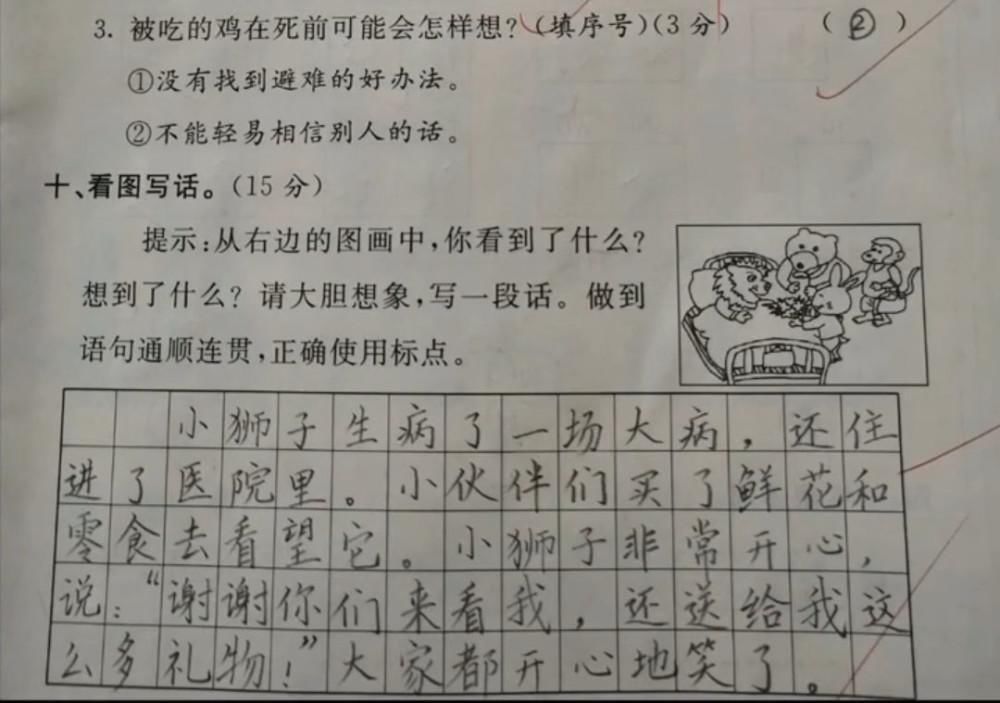 3. 被吃的鸡在死前可能会怎样想?(填序号)(3分) (②)
①没有找到避难的好办法。
②不能轻易相信别人的话。
十、看图写话。(15分)
提示:从右边的图画中,你看到了什么?
想到了什么?请大胆想象,写一段话。做到
语句通顺连贯,正确使用标点。
小狮子生病了一场大病,还住
进了医院里。小伙伴们买了鲜花和
零食去看望它。小狮子非常开心,
说:“谢谢你们来看我,还送给我这
么多礼物!”大家都开心地笑了。